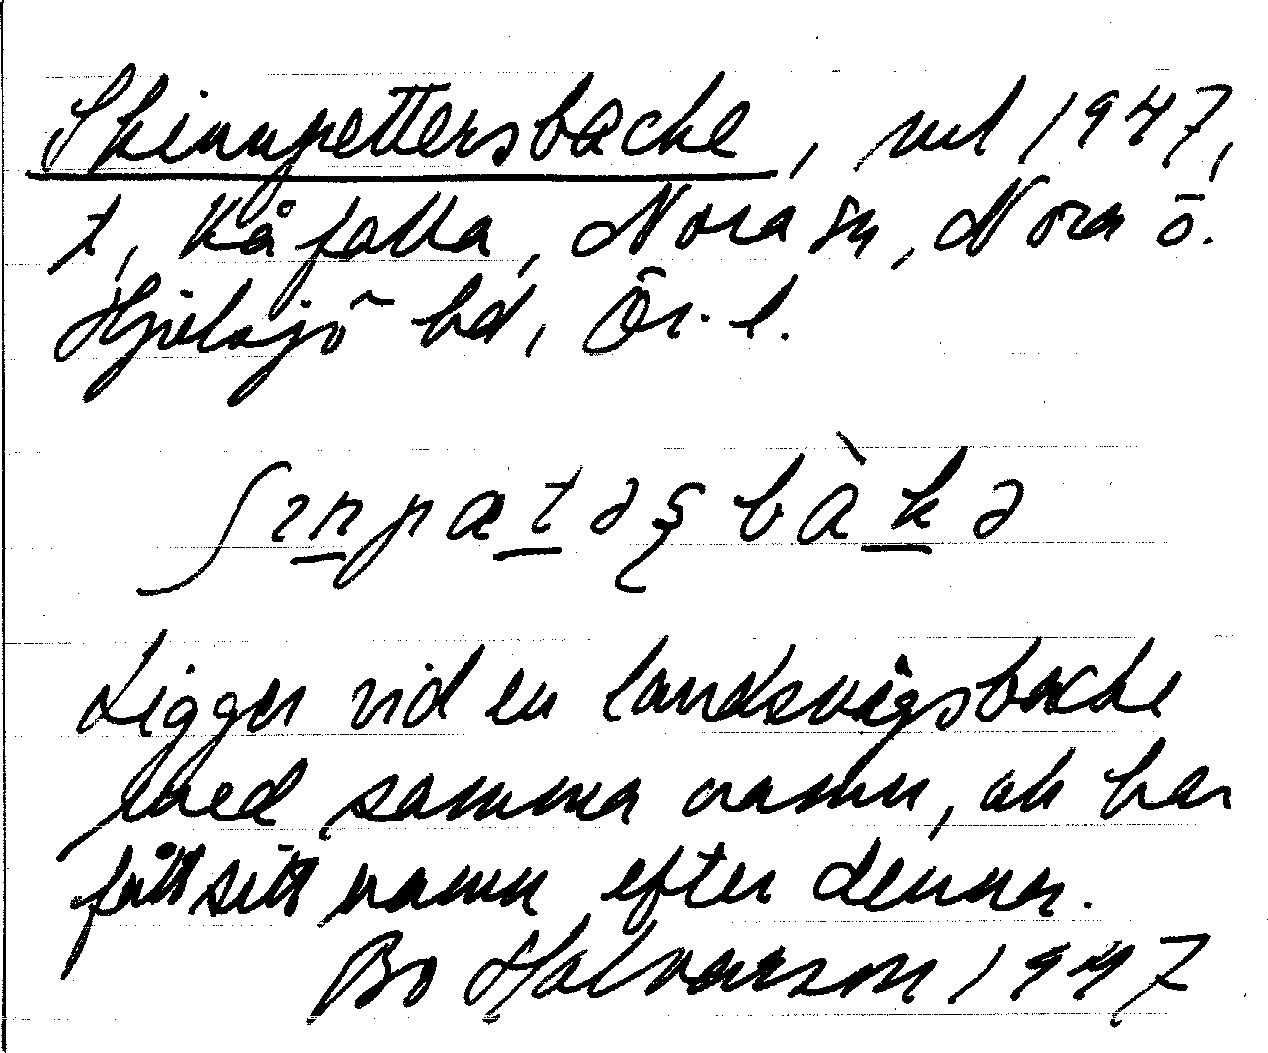 Skinnpettersbacke, ut 1947,
t, Kåfalla, Nora sn, Nora o.
Hjulsjö bd, Ör. l.
ʃɪnpætəʂbàkə
Ligger vid en landsvägsbacke
med samma namn, och har
fått sitt namn efter denna.
Bo Halvarson 1947